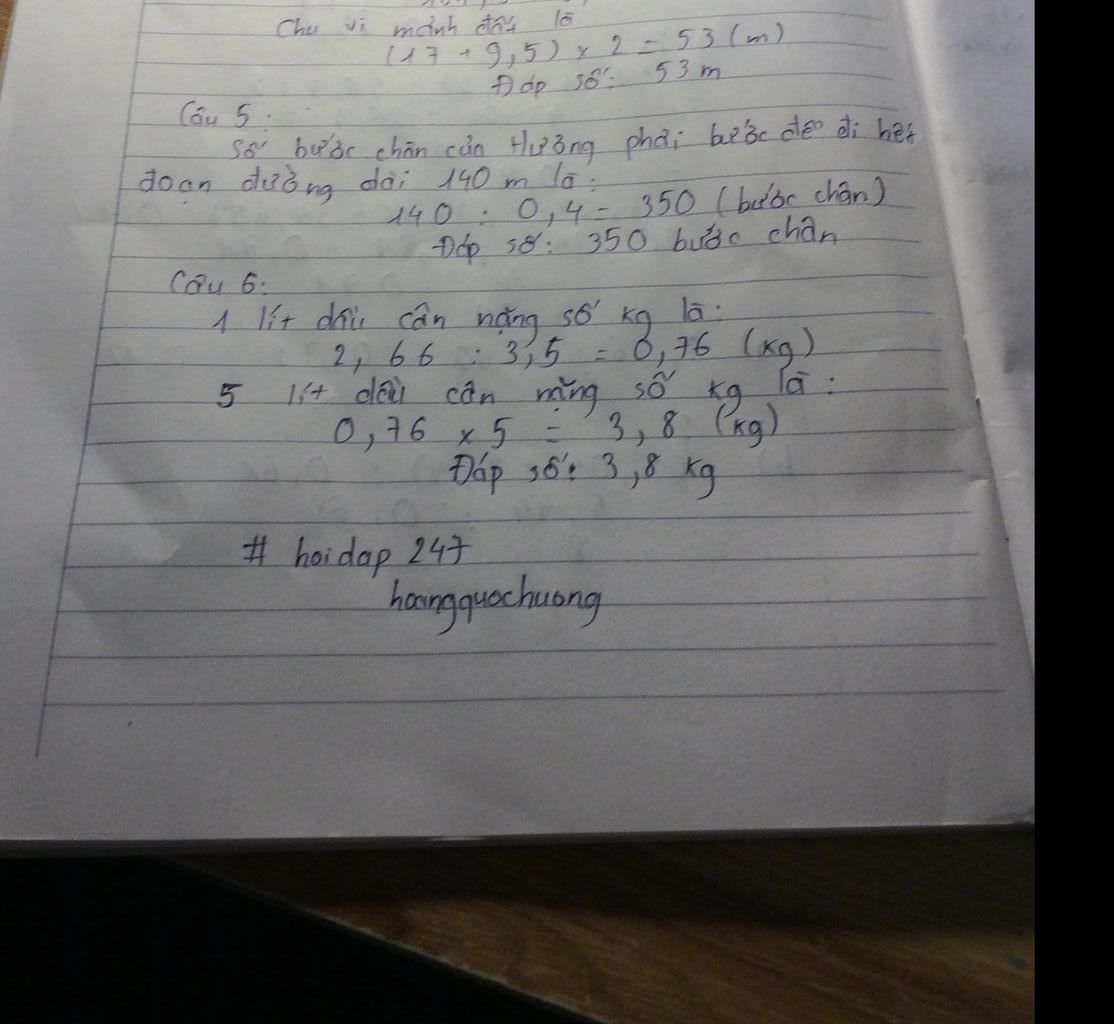 Chu vi mảnh đất là
(17 + 9,5) x 2 = 53 (m)
Đáp số: 53 m
Câu 5:
Số bước chân của Hường phải bước để đi hết
đoạn đường dài 140 m là:
140 : 0,4 = 350 (bước chân)
Đáp số: 350 bước chân
Câu 6:
1 lít dầu cân nặng số kg là:
2,66 : 3,5 = 0,76 (kg)
5 lít dầu cân nặng số kg là:
0,76 x 5 = 3,8 (kg)
Đáp số: 3,8 kg
# hoidap 247
hoangquochuong